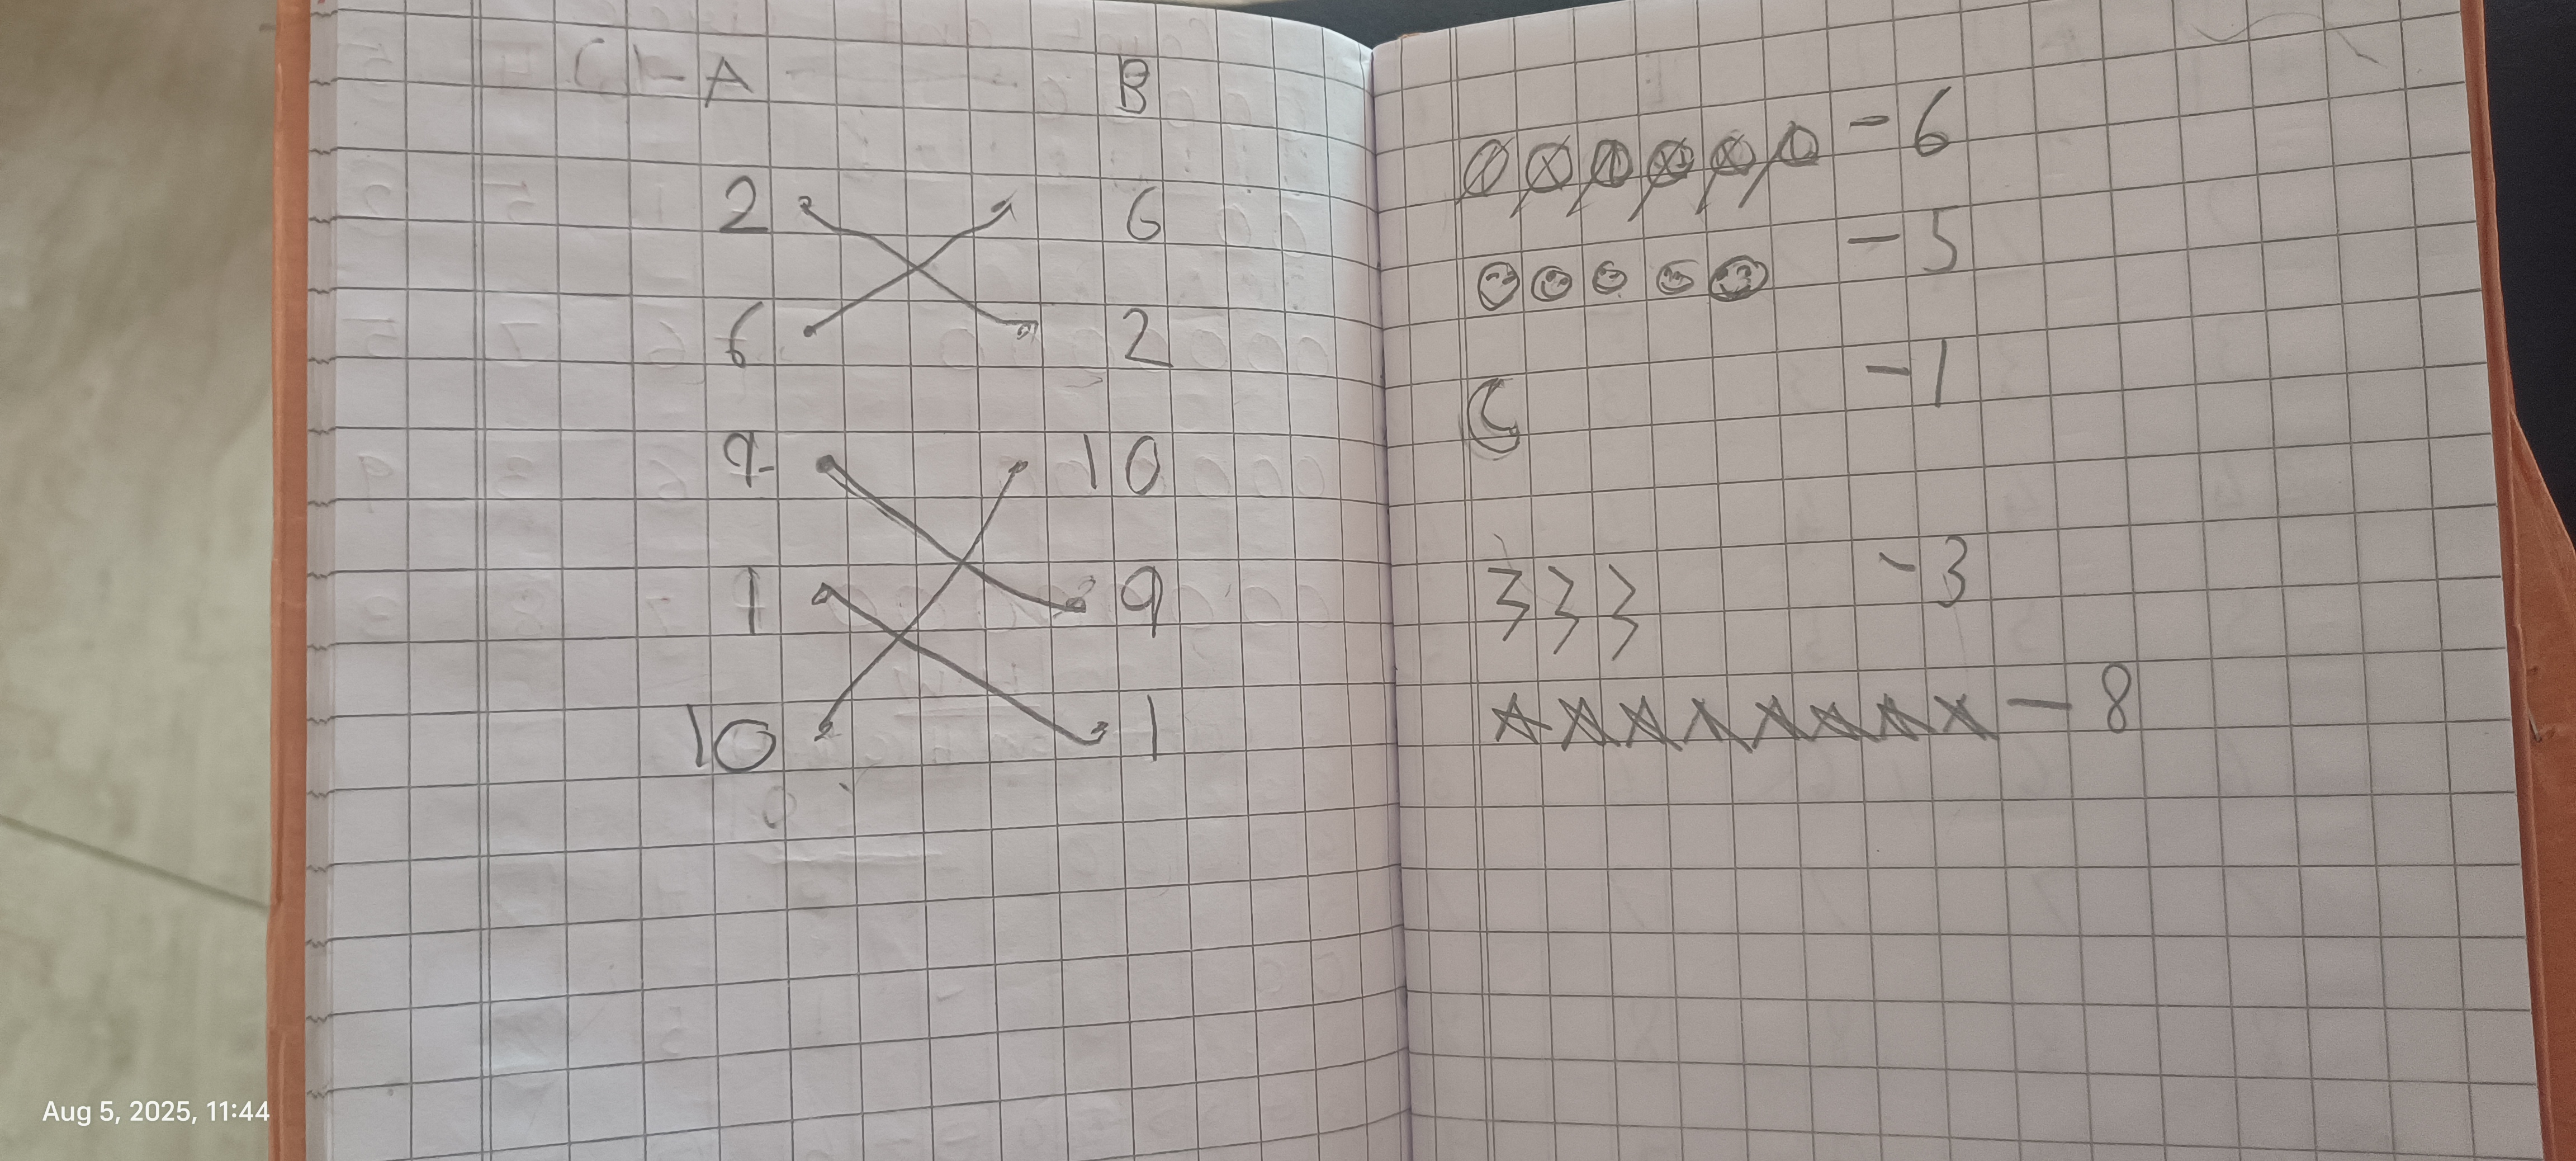 A B
2 6
6 2
9 10
1 9
10 1
- 6
- 5
- 1
- 3
- 8
Aug 5, 2025, 11:44